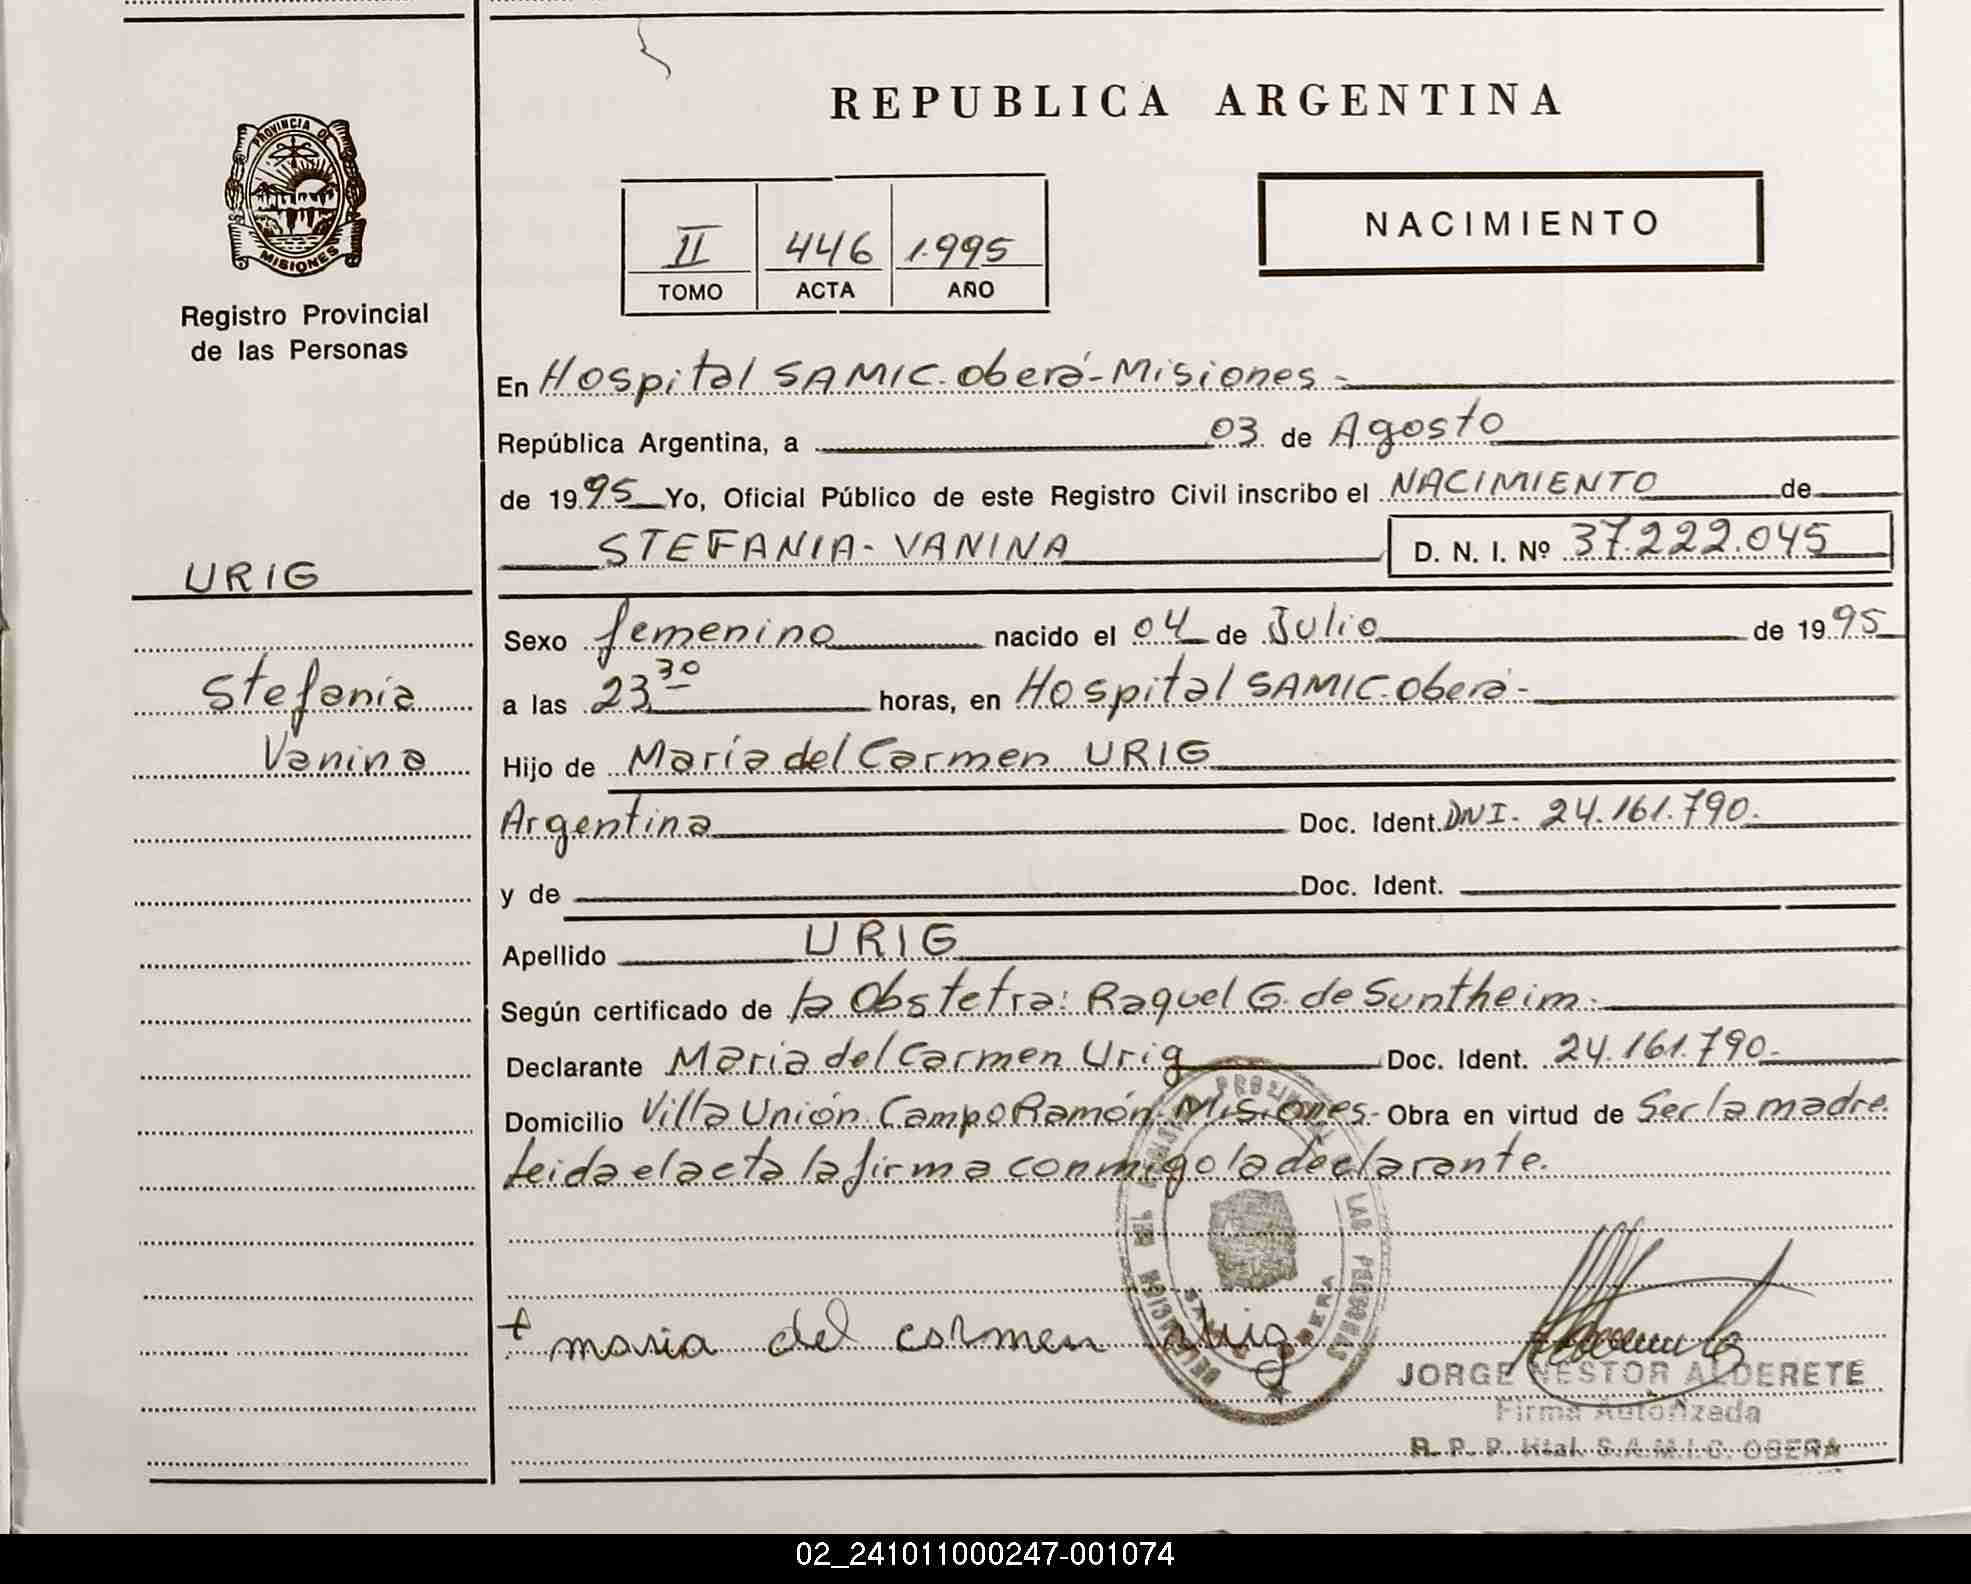 REPUBLICA ARGENTINA
PROVINCIA DE
MISIONES
Registro Provincial
de las Personas
II 446 1.995
TOMO ACTA AÑO
NACIMIENTO
En Hospital SAMIC. Oberá-Misiones.-
República Argentina, a 03 de Agosto
de 1995 Yo, Oficial Público de este Registro Civil inscribo el NACIMIENTO de
STEFANIA-VANINA D. N. I. Nº 37.222.045
URIG
Stefania
Vanina
Sexo femenino nacido el 04 de Julio de 1995
a las 23 30 horas, en Hospital SAMIC. Oberá-
Hijo de María del Carmen URIG
Argentina Doc. Ident. DNI. 24.161.790.
y de Doc. Ident.
Apellido URIG
Según certificado de la Obstetra: Raquel G. de Suntheim.
Declarante Maria del Carmen Urig Doc. Ident. 24.161.790.
Domicilio Villa Unión. Campo Ramón. Misiones- Obra en virtud de Ser la madre.
Leida el acta la firma conmigo la declarante.
+ maria del carmen urig
JORGE NESTOR ALDERETE
Firma Autorizada
R. P. P. Htal. S.A.M.I.C. OBERA
02_241011000247-001074